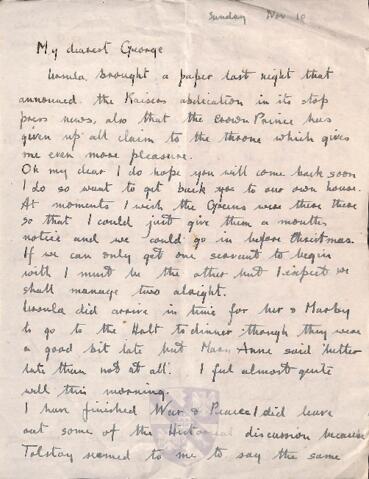 Sunday Nov 10
My dearest George
Ursula brought a paper last night that
announced the Kaisers abdication in its stop
press news, also that the Crown Prince has
given up all claim to the throne which gives
me even more pleasure.
Oh my dear I do hope you will come back soon
I do so want to get back you to our own house.
At moments I wish the Greens were there
so that I could just give them a months
notice and we could go in before Christmas.
If we can only get one servant to begin
with I must be the other but I expect we
shall manage two alright.
Ursula did arrive in time for her &
to go to the Holt to dinner though they were
a good bit late but Mary Anne said better
late than not at all. I feel almost quite
well this morning.
I have finished War & Peace I did leave
out some of the Historical discussion because
Tolstoy seemed to me to say the same